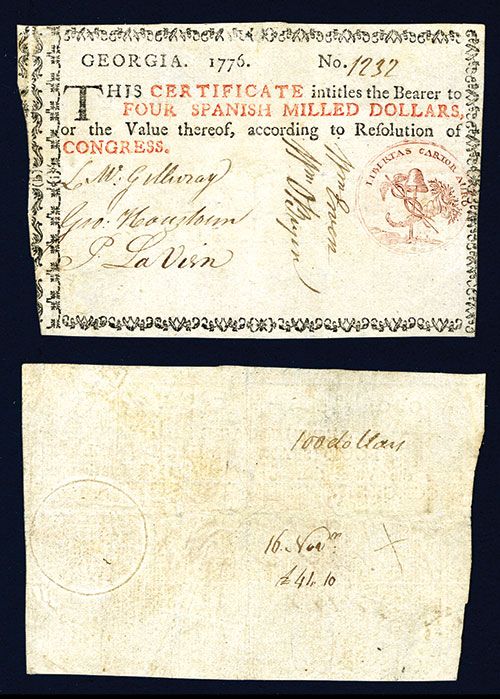 GEORGIA. 1776. No. 1232
THIS CERTIFICATE intitles the Bearer to
FOUR SPANISH MILLED DOLLARS,
or the Value thereof, according to Resolution of
CONGRESS.
L McGillivray
Geo. Houstoun
P LaVien
Wm Ewen
Wm OBryen
LIBERTAS CARIOR
100 dollars
16. Novr.
£41. 10